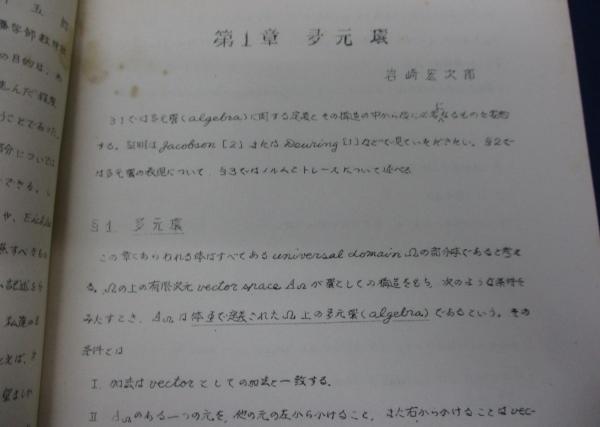 第1章 多元環
岩崎宏次郎
§1では多元環(algebra)に関する定義とその構造の中から後に必要なるものを要約
する。証明はJacobson [2] またはDeuring [1]などで見ていただきたい。§2で
は多元環の表現について、§3ではノルムとトレースについて述べる
§1. 多元環
この章であらわれる体はすべてある universal domain Ωの部分体であると考え
る。Ωの上の有限次元 vector space AΩ が環としての構造をもち、次のような条件を
みたすとき、AΩ は体 で定義されたΩ上の多元環(algebra)であるという。その
条件とは
I. 加法はvectorとしての加法と一致する.
II AΩのある一つの元を、他の元の左からかけること、また右からかけることはvec-
五
の目的は、
進んだ
うことであった。
分については
できる。
や、Eichler
すべきもの